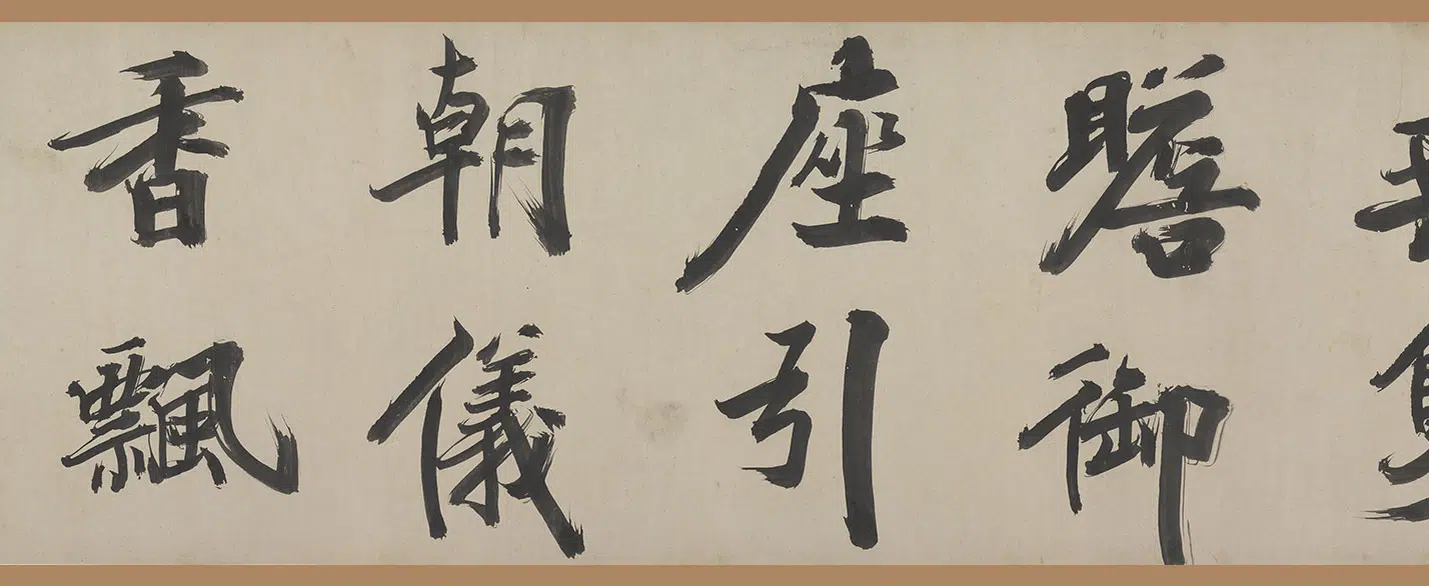 瞻御
座引
朝儀
香飄